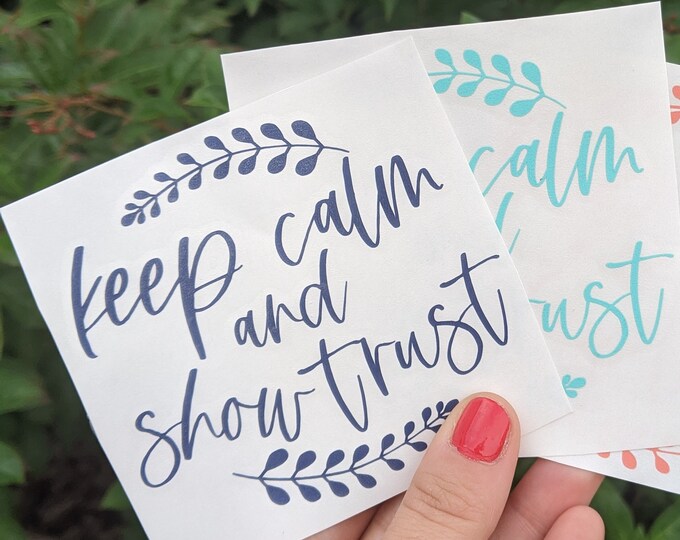 keep calm
and
show trust
calm
trust